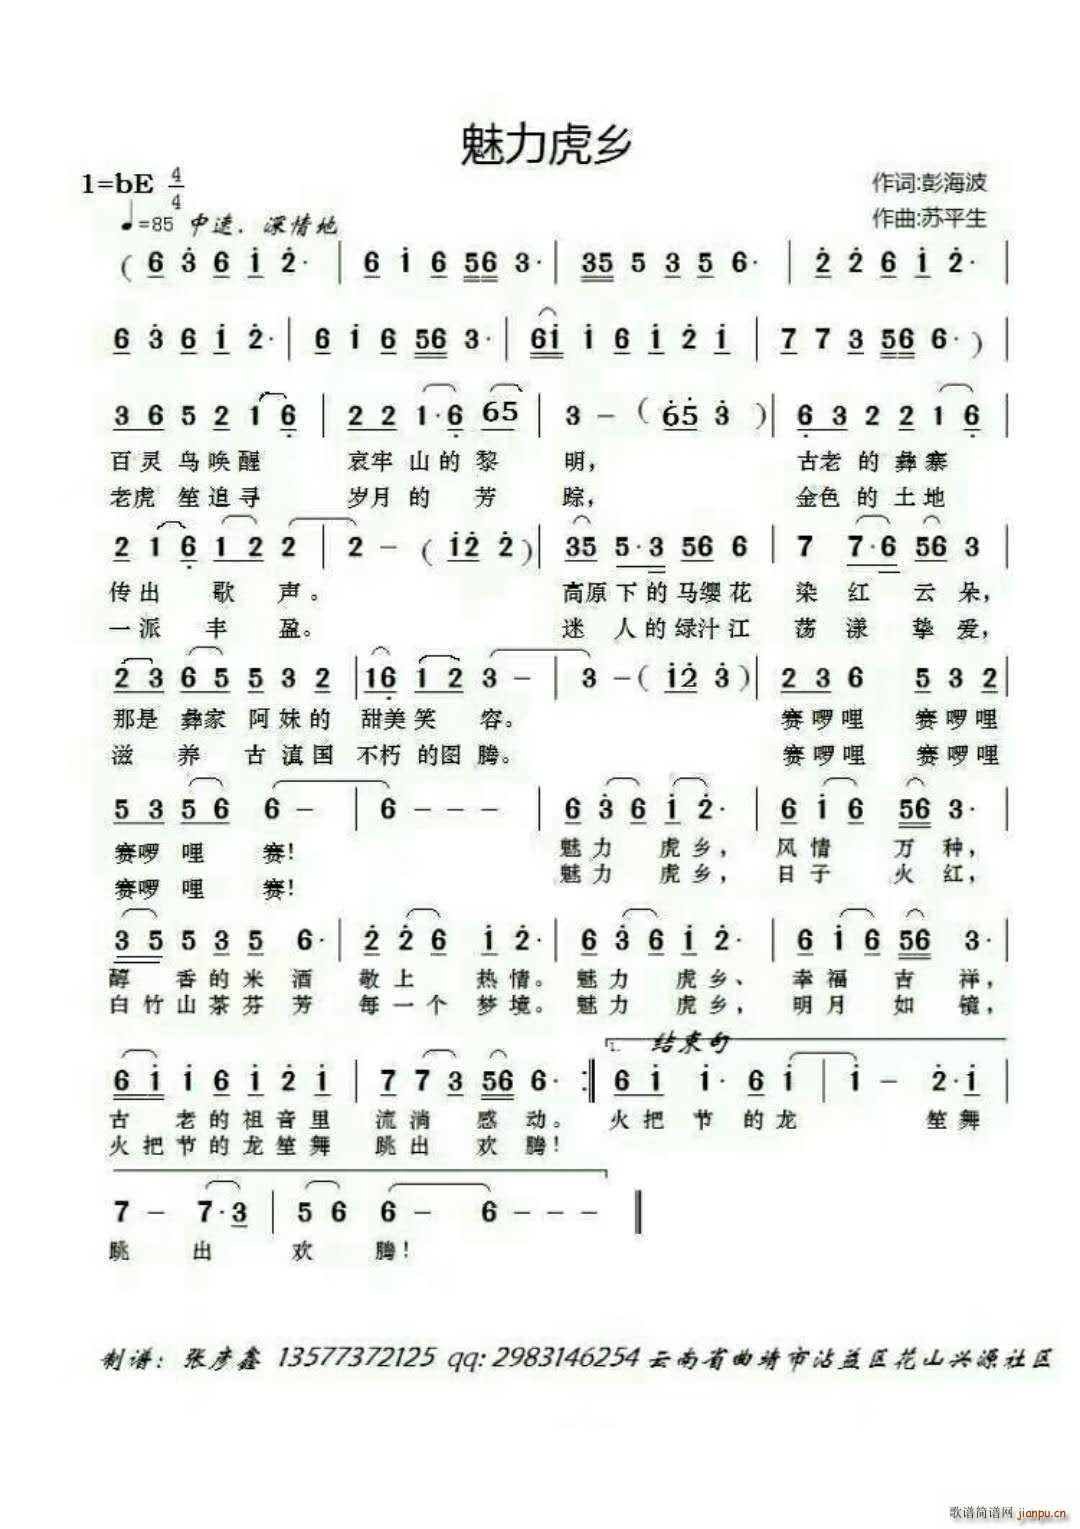 魅力虎乡
1=bE 4/4
作词:彭海波
♩=85 中速、深情地
作曲:苏平生
( 6 3 6 1 2· | 6 1 6 56 3· | 35 5 3 5 6· | 2 2 6 1 2· |
6 3 6 1 2· | 6 1 6 56 3· | 61 1 6 1 2 1 | 7 7 3 56 6· ) |
3 6 5 2 1 6 | 2 2 1·6 65 | 3 – ( 65 3 ) | 6 3 2 2 1 6 |
百灵鸟唤醒 哀牢山的黎 明, 古老的彝寨
老虎笙追寻 岁月的芳 踪, 金色的土地
2 1 6 1 2 2 | 2 – ( 12 2 ) | 35 5·3 56 6 | 7 7·6 56 3
传出 歌 声。 高原下的马缨花 染红云朵,
一派 丰 盈。 迷人的绿汁江 荡漾挚爱,
2 3 6 5 5 3 2 | 16 1 2 3 – | 3 – ( 12 3 ) | 2 3 6 5 3 2 |
那是彝家阿妹的 甜美笑 容。 赛啰哩 赛啰哩
滋养古滇国 不朽的图腾。 赛啰哩 赛啰哩
5 3 5 6 6 – | 6 – – – | 6 3 6 1 2· | 6 1 6 56 3· |
赛啰哩 赛! 魅力虎乡, 风情万种,
赛啰哩 赛! 魅力虎乡, 日子火红,
3 5 5 3 5 6· | 2 2 6 1 2· | 6 3 6 1 2· | 6 1 6 56 3· |
醇香的米酒 敬上热情。 魅力虎乡、 幸福吉祥,
白竹山茶芬芳 每一个梦境。 魅力虎乡, 明月如镜,
1. 结束句
6 1 1 6 1 2 1 | 7 7 3 56 6· :‖ 6 1 1· 6 1 | 1 – 2·1 |
古老的祖音里 流淌感动。 火把节的龙 笙舞
火把节的龙笙舞 跳出欢腾!
7 – 7·3 | 5 6 6 – 6 – – – ‖
跳 出 欢 腾!
制谱: 张彦鑫 13577372125 qq: 2983146254 云南省曲靖市沾益区花山兴源社区
歌谱简谱网 jianpu.cn